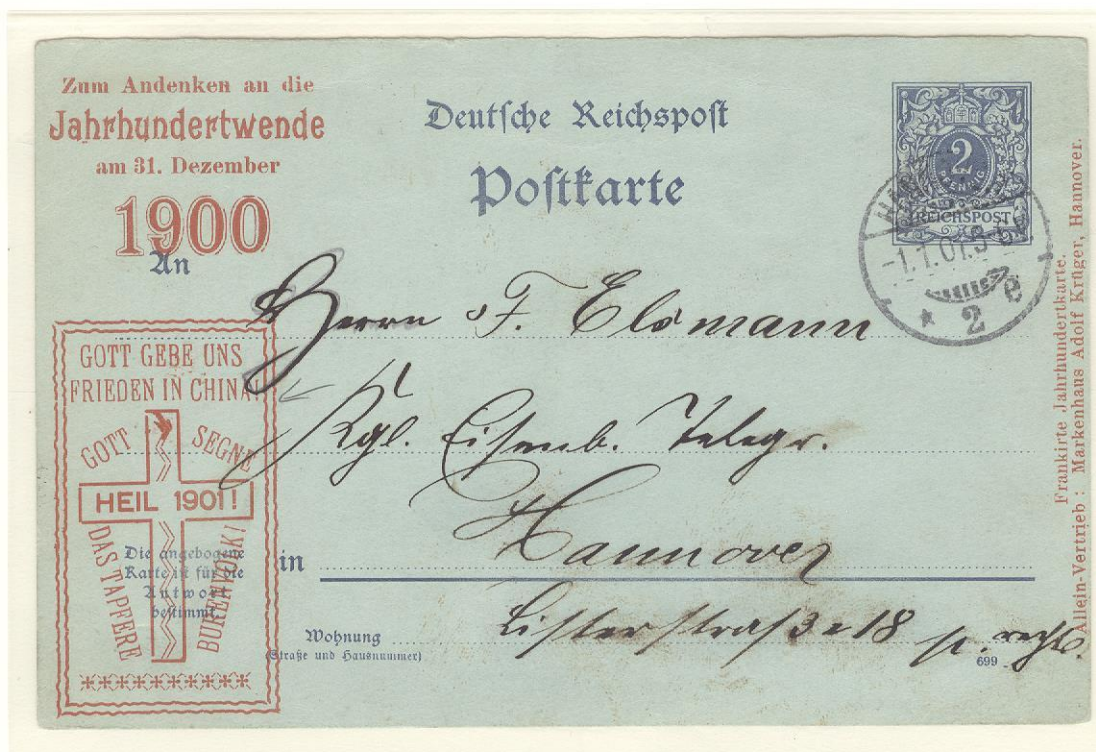 Zum Andenken an die
Jahrhundertwende
am 31. Dezember
1900
Deutsche Reichspost
Postkarte
2
PFENNIG
REICHSPOST
-1.1.01.
* 2 e
An
Herrn F. Elsmann
Kgl. Eisenb. Telegr.
Hannover
in
Wohnung
(Straße und Hausnummer)
Listerstraße 18 p. rechts.
699
GOTT GEBE UNS
FRIEDEN IN CHINA!
GOTT SEGNE
HEIL 1901!
DAS TAPFERE
BURENVOLK!
Die angebogene
Karte ist für die
Antwort
bestimmt.
Frankirte Jahrhundertkarte.
Allein-Vertrieb: Markenhaus Adolf Krüger, Hannover.